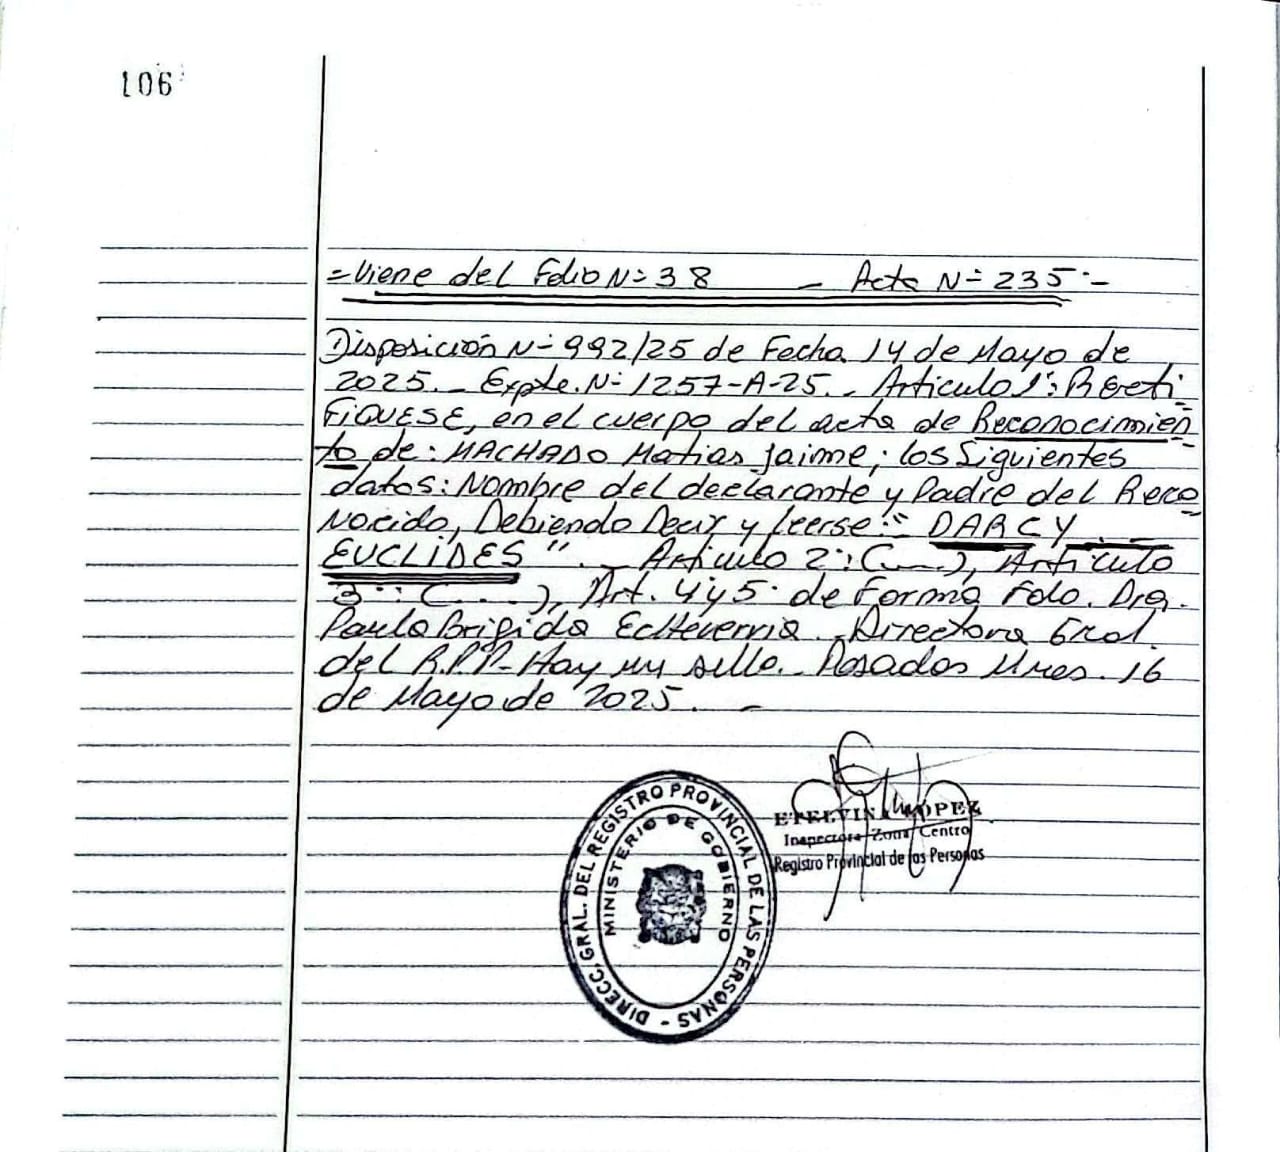 106
=Viene del Folio N= 38 - Acta N= 235.-
Disposición N- 992/25 de Fecha 14 de Mayo de
2025.- Expte. N- 1257-A-25.- Articulo 1°: Recti
FIQUESE, en el cuerpo del acta de Reconocimien
to de: MACHADO Matias Jaime; los Siguientes
datos: Nombre del declarante y Padre del Reco
Nocido, Debiendo Decir y leerse: " DARCY
EUCLIDES ". Articulo 2°: (....), Articulo
3°: (....), Art. 4 y 5. de Forma Fdo. Dra.
Paula Brigida Echeverria. Directora Gral.
del R.P.P- Hay un sello.- Posadas Mnes. 16
de Mayo de 2025. -
ETELVINA LÓPEZ
Inspectora Zona Centro
Registro Provincial de las Personas
DIRECC. GRAL. DEL REGISTRO PROVINCIAL DE LAS PERSONAS -
MINISTERIO DE GOBIERNO